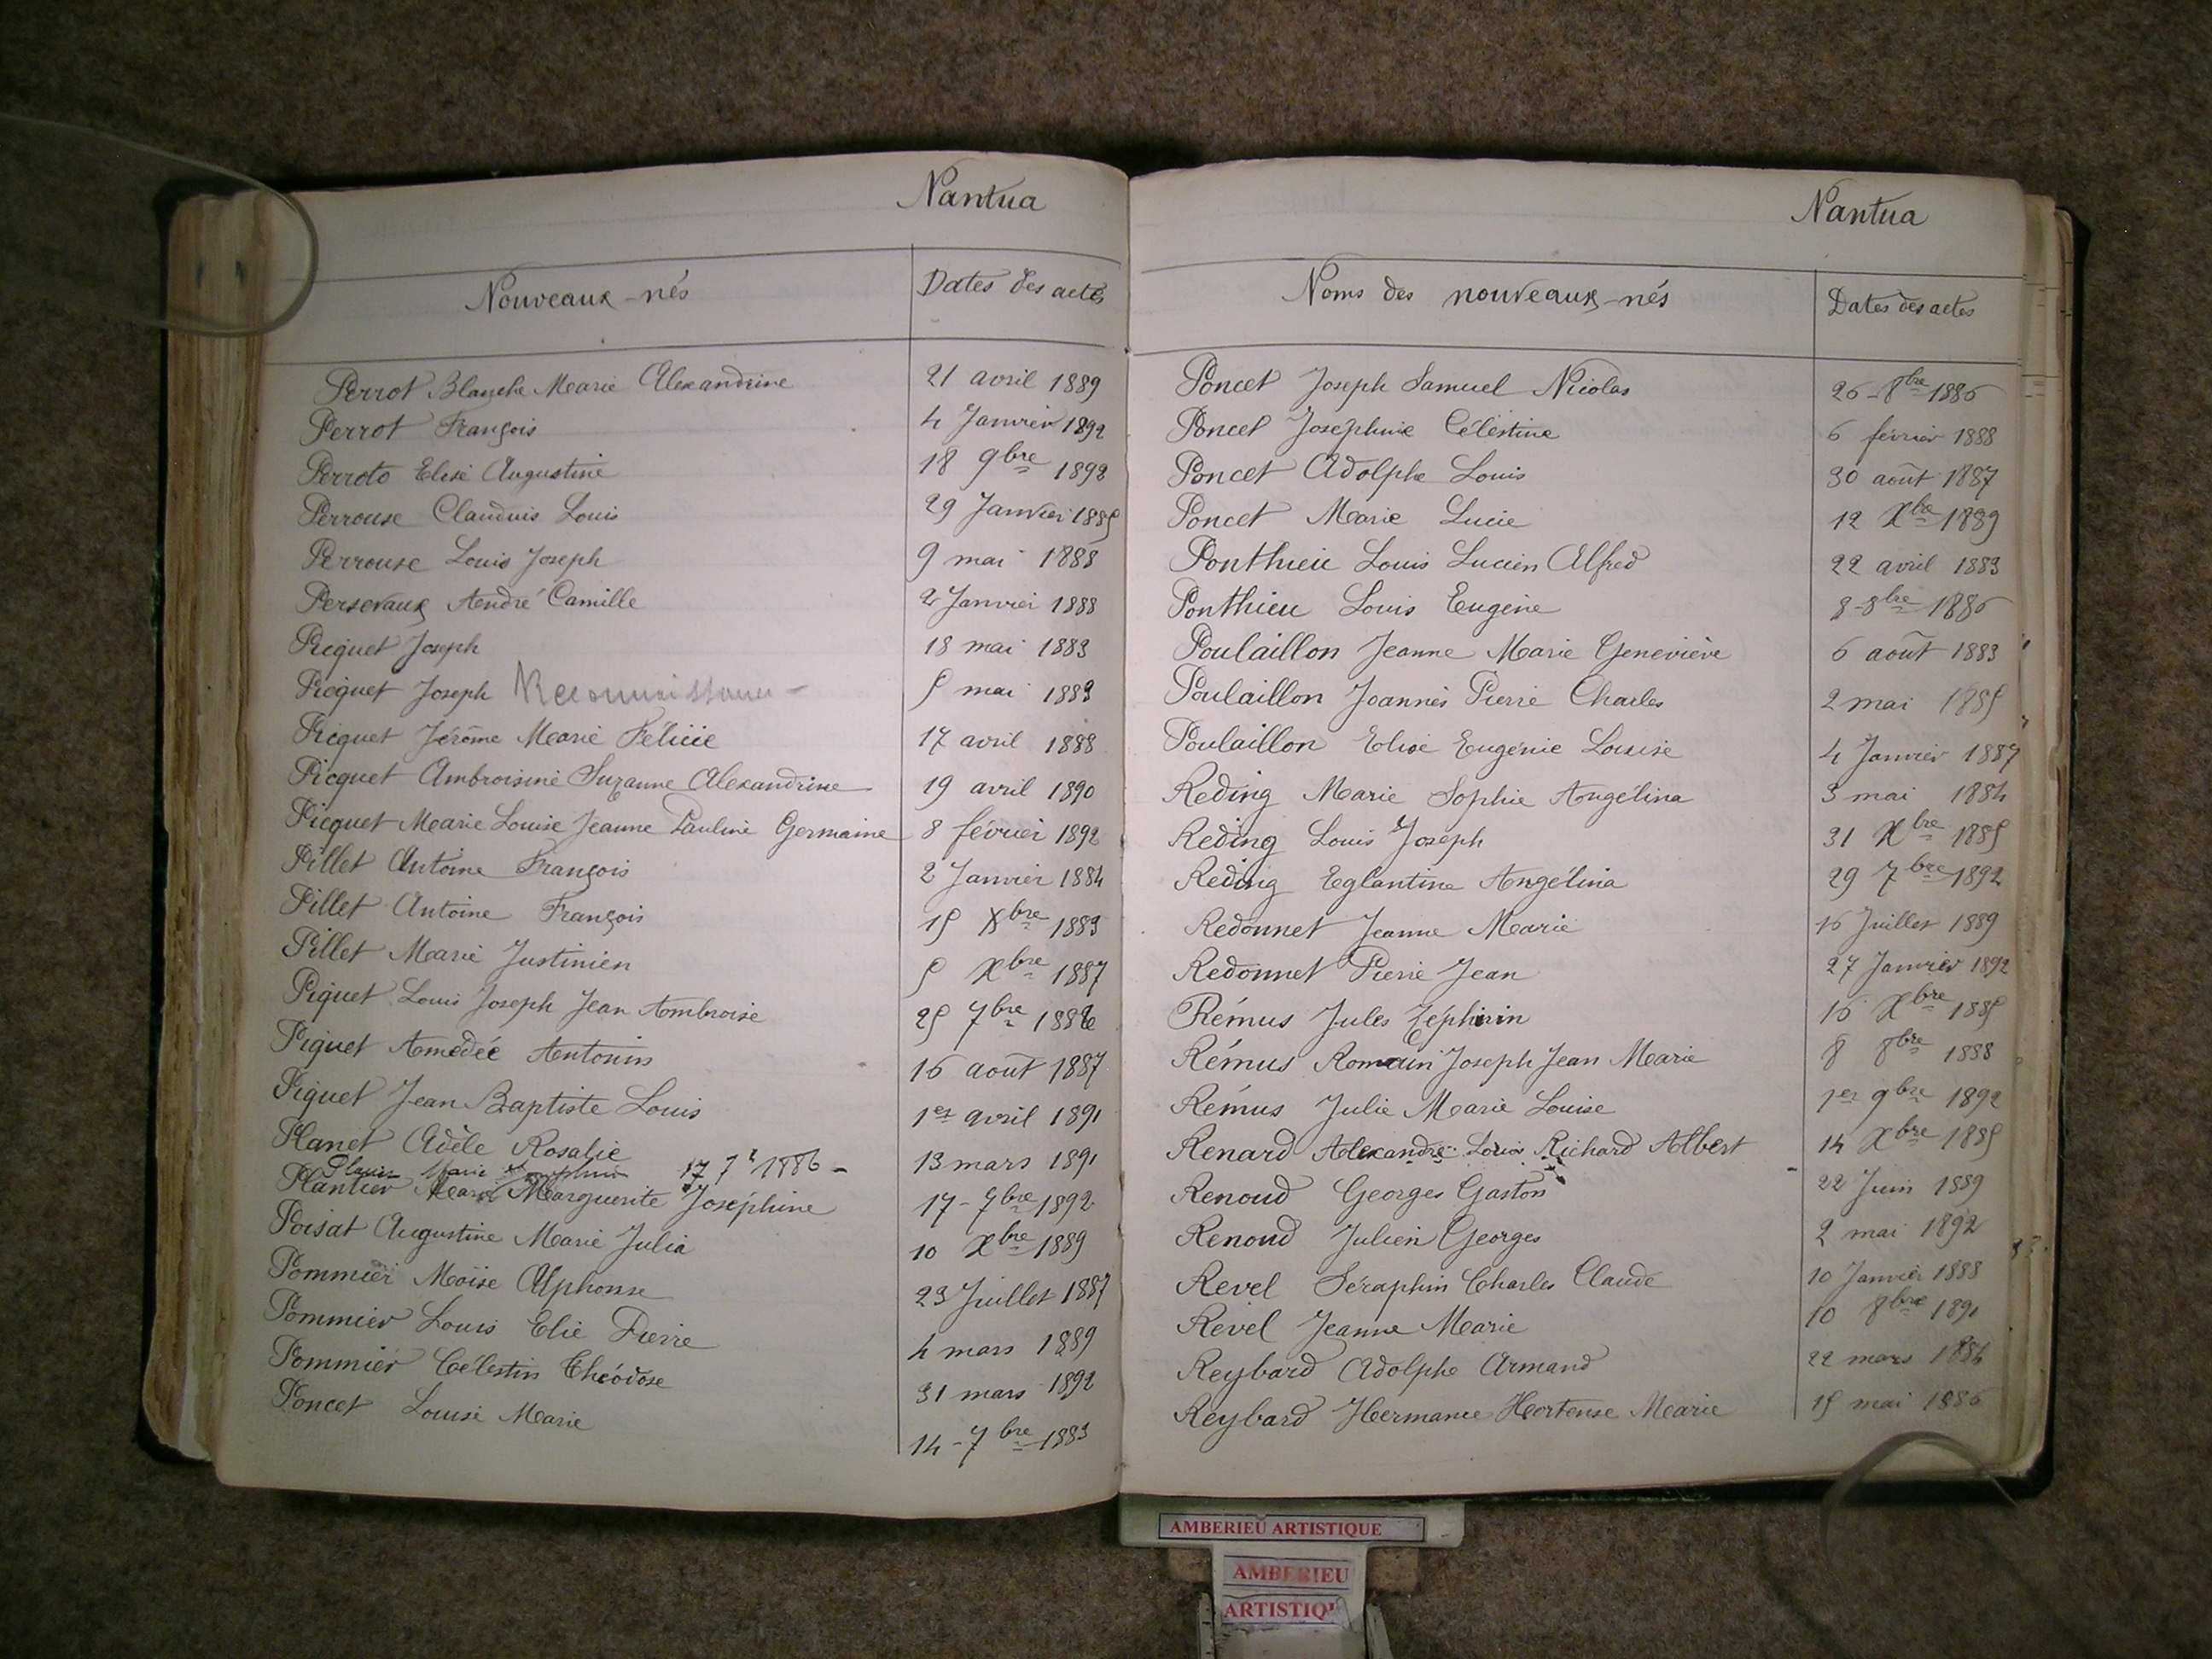 Nantua
Nouveaux-nés Dates des actes
Perrot Blanche Marie Alexandrine 21 avril 1889
Perrot François 4 Janvier 1892
Perroto Elisé Augustine 18 9bre 1892
Perrouse Claudius Louis 29 Janvier 1885
Perrouse Louis Joseph 9 mai 1888
Persevaux André Camille 2 Janvier 1888
Picquet Joseph 18 mai 1883
Picquet Joseph Reconnaissance - 5 mai 1883
Picquet Jérôme Marie Félicie 17 avril 1888
Picquet Ambroisine Suzanne Alexandrine 19 avril 1890
Picquet Marie Louise Jeanne Pauline Germaine 8 février 1892
Pillet Antoine François 2 Janvier 1884
Pillet Antoine François 15 Xbre 1883
Pillet Marie Justinien 5 Xbre 1887
Piquet Louis Joseph Jean Ambroise 25 7bre
Piquet Amedée Antonin 16 août 1887
Piquet Jean Baptiste Louis 1er avril 1891
Planet Adèle Rosalie 13 mars 1891
Marie 17 7r 1886 -
Plantier Marie Marguerite Joséphine 17-7bre 1892
Poisat Augustine Marie Julia 10 Xbre 1889
Pommier Moïse Alphonse 23 Juillet 1887
Pommier Louis Elie Pierre 4 mars 1889
Pommier Célestin Théodose 31 mars 1892
Poncet Louise Marie 14-7bre 1883
Nantua
Noms des nouveaux-nés Dates des actes
Poncet Joseph Samuel Nicolas 26-8bre 1886
Poncet Josephine Célestine 6 février 1888
Poncet Adolphe Louis 30 août 1887
Poncet Marie Lucie 12 Xbre 1889
Ponthieu Louis Lucien Alfred 22 avril 1883
Ponthieu Louis Eugène 8-8bre 1886
Poulaillon Jeanne Marie Geneviève 6 août 1883
Poulaillon Joannès Pierre Charles 2 mai 1885
Poulaillon Elise Eugénie Louise 4 Janvier 1887
Reding Marie Sophie Angélina 3 mai 1884
Reding Louis Joseph 31 Xbre 1885
Reding Eglantine Angélina 29 7bre 1892
Redonnet Jeanne Marie 16 Juillet 1889
Redonnet Pierre Jean 27 Janvier 1892
Rémus Jules Zephirin 16 Xbre 1885
Rémus Romain Joseph Jean Marie 8 8bre 1888
Rémus Julie Marie Louise 1er 9bre 1892
Renard Alexandre Louis Richard Albert 14 Xbre 1885
Renoud Georges Gaston 22 Juin 1889
Renoud Julien Georges 2 mai 1892
Revel Séraphin Charles Claude 10 Janvier 1888
Revel Jeanne Marie 10 8bre 1891
Reybard Adolphe Armand 22 mars
Reybard Hermance Hortense Marie 15 mai 1886
AMBERIEU ARTISTIQUE
AMBERIEU
ARTISTIQU